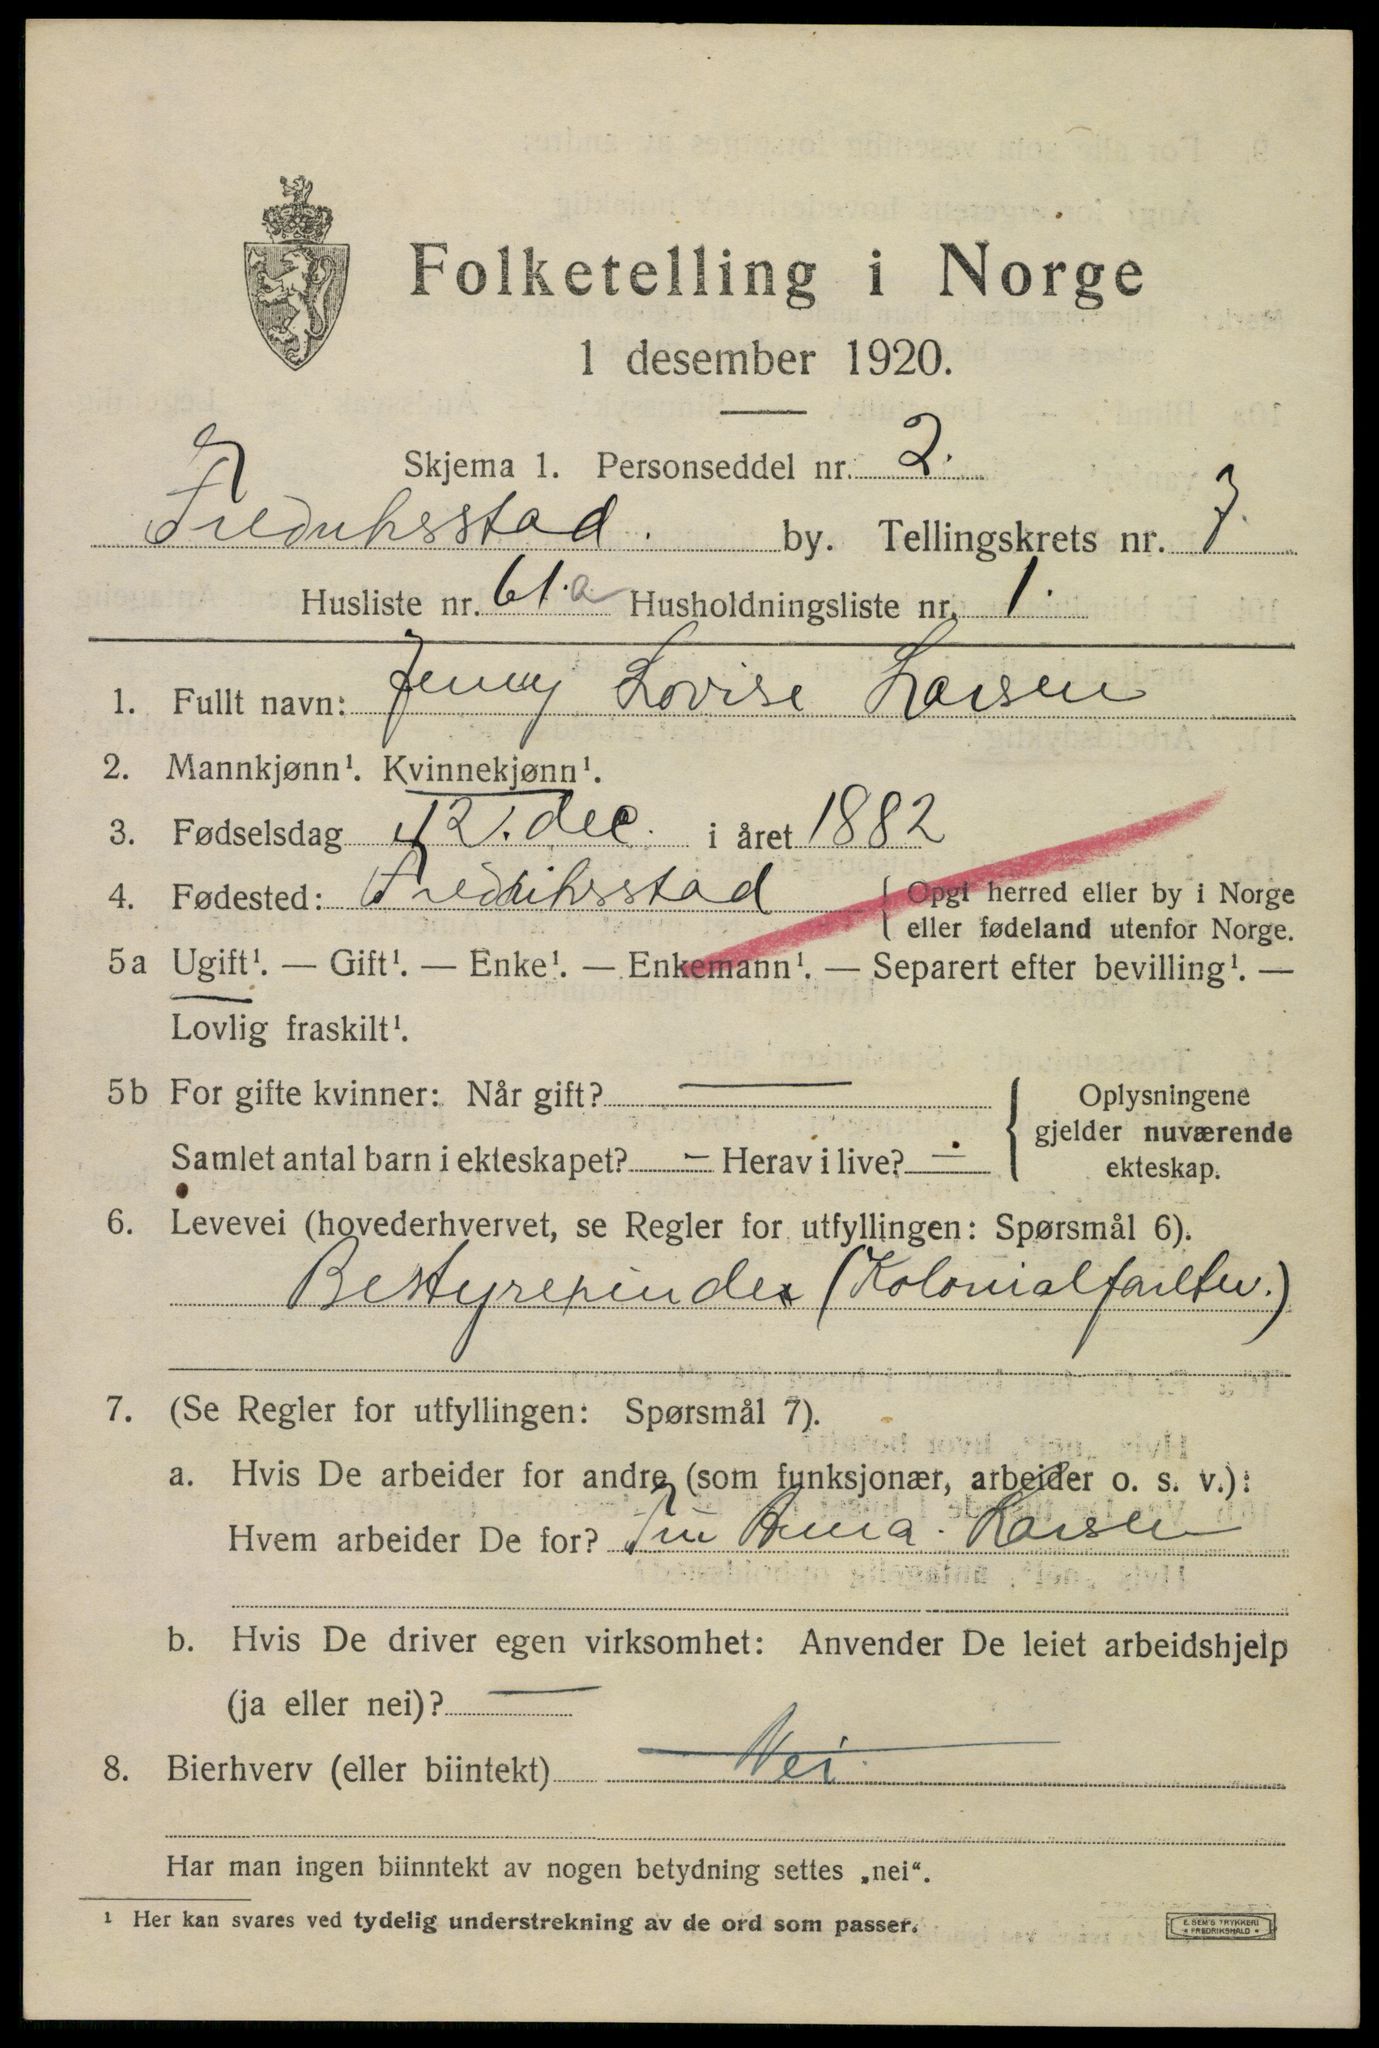 Folketelling i Norge
1 desember 1920.
Skjema 1. Personseddel nr. 2.
Fredriksstad. by. Tellingskrets nr. 7.
Husliste nr. 61.a Husholdningsliste nr. 1.
1. Fullt navn: Jenny Lovise Larsen
2. Mannkjønn¹. Kvinnekjønn¹.
3. Fødselsdag 12. dec. i året 1882
4. Fødested: Fredriksstad { Opgi herred eller by i Norge
eller fødeland utenfor Norge.
5a Ugift¹. — Gift¹. — Enke¹. — Enkemann¹. — Separert efter bevilling¹. —
Lovlig fraskilt¹.
5b For gifte kvinner: Når gift? —
Samlet antal barn i ekteskapet? — Herav i live? —
Oplysningene
gjelder nuværende
ekteskap.
6. Levevei (hovederhvervet, se Regler for utfyllingen: Spørsmål 6).
Bestyrerinde (Kolonialforretn.)
7. (Se Regler for utfyllingen: Spørsmål 7).
a. Hvis De arbeider for andre (som funksjonær, arbeider o. s. v.):
Hvem arbeider De for? Fru Anna Larsen
b. Hvis De driver egen virksomhet: Anvender De leiet arbeidshjelp
(ja eller nei)? —
8. Bierhverv (eller biintekt) Nei.
Har man ingen biinntekt av nogen betydning settes „nei“.
¹ Her kan svares ved tydelig understrekning av de ord som passer.
E. SEM'S TRYKKERI
FREDRIKSHALD